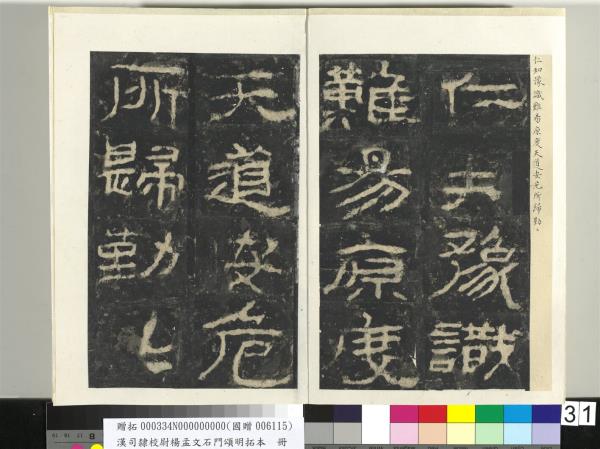 仁知豫識難易原度天道安危所歸勤〻
仁知豫識
難易原度
天道安危
所歸勤〻
贈拓 000334N000000000(國贈 006115)
漢司隸校尉楊孟文石門頌明拓本 冊
31
8